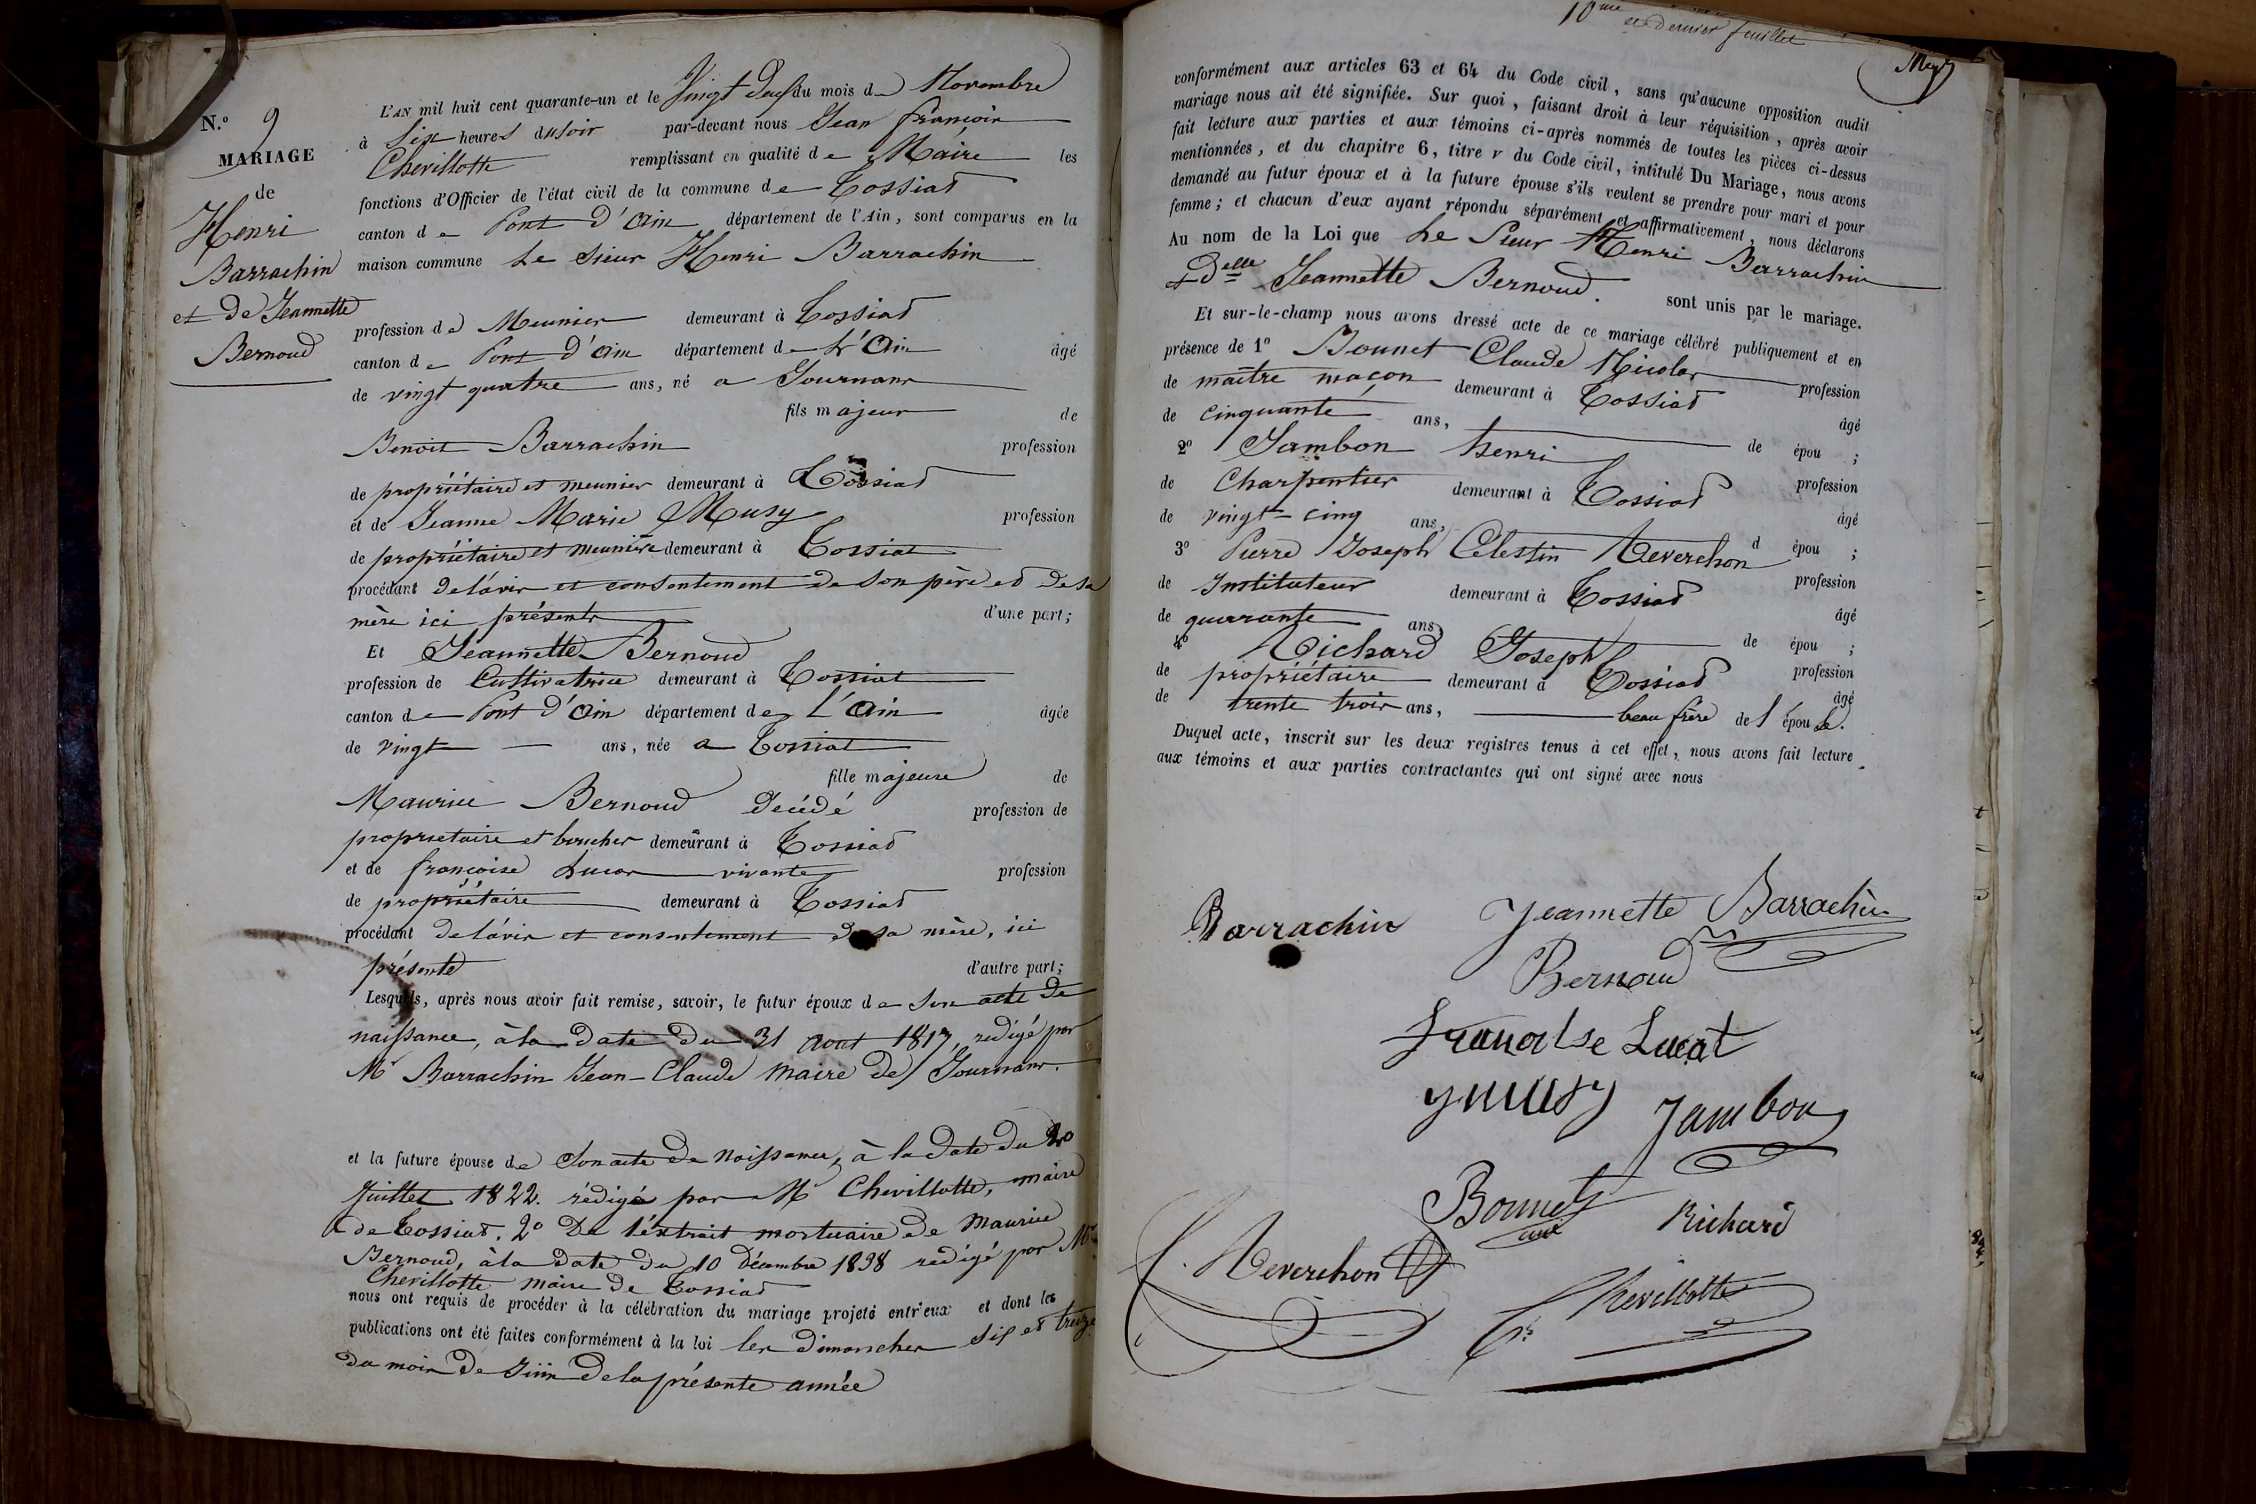 N.º 9
MARIAGE
de
Henri
Barrachin
et de Jeannette
Bernoud
L'AN mil huit cent quarante-un et le Vingt du mois de Novembre
à Six heures du soir par-devant nous Jean françois
Chevillotte remplissant en qualité de Maire les
fonctions d'Officier de l'état civil de la commune de Tossiat
canton de Pont d'ain département de l'Ain, sont comparus en la
maison commune Le Sieur Henri Barrachin
profession de Meunier demeurant à Tossiat
canton de Pont d'ain département de L'Ain âgé
de vingt quatre ans, né a Journans
fils majeur de
Benoit Barrachin profession
de propriétaire et meunier demeurant à Tossiat
et de Jeanne Marie Musy profession
de propriétaire et meunière demeurant à Tossiat
procédant de l'avis et consentement de son père et de sa
mère ici présents d'une part;
Et Jeannette Bernoud
profession de Cultivatrice demeurant à Tossiat
canton de Pont d'ain département de L'Ain âgée
de vingt ans, née a Tossiat
fille majeure de
Maurice Bernoud décédé profession de
propriétaire et boucher demeurant à Tossiat
et de françoise Lucas vivante profession
de propriétaire demeurant à Tossiat
procédant de l'avis et consentement de sa mère, ici
présente d'autre part;
Lesquels, après nous avoir fait remise, savoir, le futur époux de Son acte de
naissance, à la date du 31 aout 1817, redigé par
Mr Barrachin Jean-Claude maire de Journans.
et la future épouse de Son acte de naissance, à la date du
Juillet 1822. rédigé par Mr Chevillotte, maire
de Tossiat. 2º De l'extrait mortuaire de Maurice
Bernoud, à la date du 10 décembre 1838 redigé par Mr
Chevillotte maire de Tossiat
nous ont requis de procéder à la célébration du mariage projeté entr'eux et dont les
publications ont été faites conformément à la loi les dimanches six et treize
du mois de Juin de la présente année
10me et dernier feuillet
conformément aux articles 63 et 64 du Code civil, sans qu'aucune opposition audit
mariage nous ait été signifiée. Sur quoi, faisant droit à leur réquisition, après avoir
fait lecture aux parties et aux témoins ci-après nommés de toutes les pièces ci-dessus
mentionnées, et du chapitre 6, titre v du Code civil, intitulé Du Mariage, nous avons
demandé au futur époux et à la future épouse s'ils veulent se prendre pour mari et pour
femme; et chacun d'eux ayant répondu séparément et affirmativement, nous déclarons
Au nom de la Loi que Le Sieur Henri Barrachin
et Delle Jeannette Bernoud. sont unis par le mariage.
Et sur-le-champ nous avons dressé acte de ce mariage célébré publiquement et en
présence de 1º Bonnet Claude Nicolas profession
de maître maçon demeurant à Tossiat âgé
de cinquante ans, de épou ;
2º Jambon henri profession
de Charpentier demeurant à Tossiat âgé
de vingt-cinq ans, d épou ;
3º Pierre Joseph Célestin Reverchon profession
de Instituteur demeurant à Tossiat âgé
de quarante ans de épou ;
4º Richard Joseph profession
de propriétaire demeurant à Tossiat âgé
de trente trois ans, beau frère de l'épouse.
Duquel acte, inscrit sur les deux registres tenus à cet effet, nous avons fait lecture
aux témoins et aux parties contractantes qui ont signé avec nous
Barrachin Jeannette Barrachin
Bernoud
Lucat
Jmusy Jambon
Bonnet Richard
Reverchon
Chevillotte